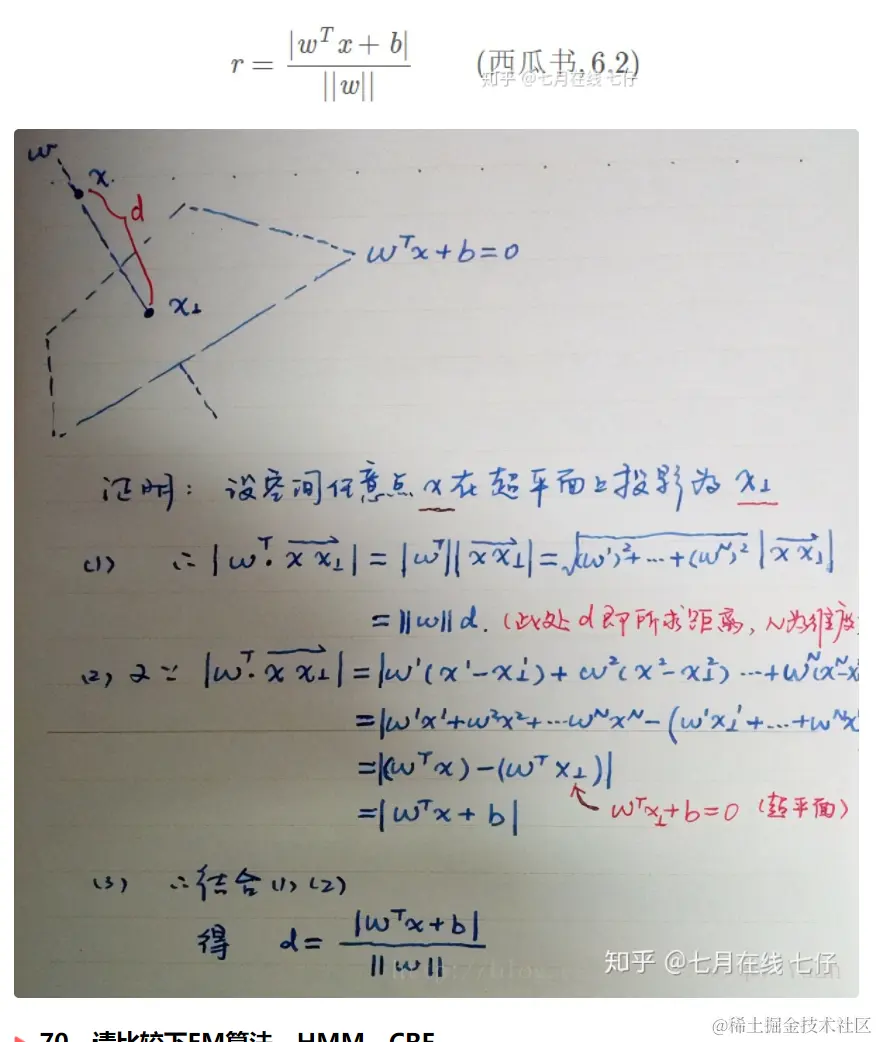 r = |w^T x + b| / ||w|| (西瓜书, 6.2)
知乎 @七月在线 七仔
w
x
d
x⊥
w^T x + b = 0
证明: 设空间任意点 x 在超平面上投影为 x⊥
(1) ∴ |w^T · xx⊥| = |w^T||xx⊥| = √((w^1)^2 + ··· + (w^N)^2) |xx⊥|
= ||w|| d. (此处 d 即所求距离, N为维度
(2) 又∵ |w^T · xx⊥| = |w^1(x^1 - x⊥^1) + w^2(x^2 - x⊥^2) ··· + w^N(x^N - x
= |w^1x^1 + w^2x^2 + ··· w^Nx^N - (w^1x⊥^1 + ... + w^Nx
= |(w^T x) - (w^T x⊥)|
= |w^T x + b| w^T x⊥ + b = 0 (超平面)
(3) ∴ 结合 (1), (2)
得 d = |w^T x + b| / ||w||
知乎 @七月在线 七仔
@稀土掘金技术社区
70、请比较下EM算法、HMM、CRF